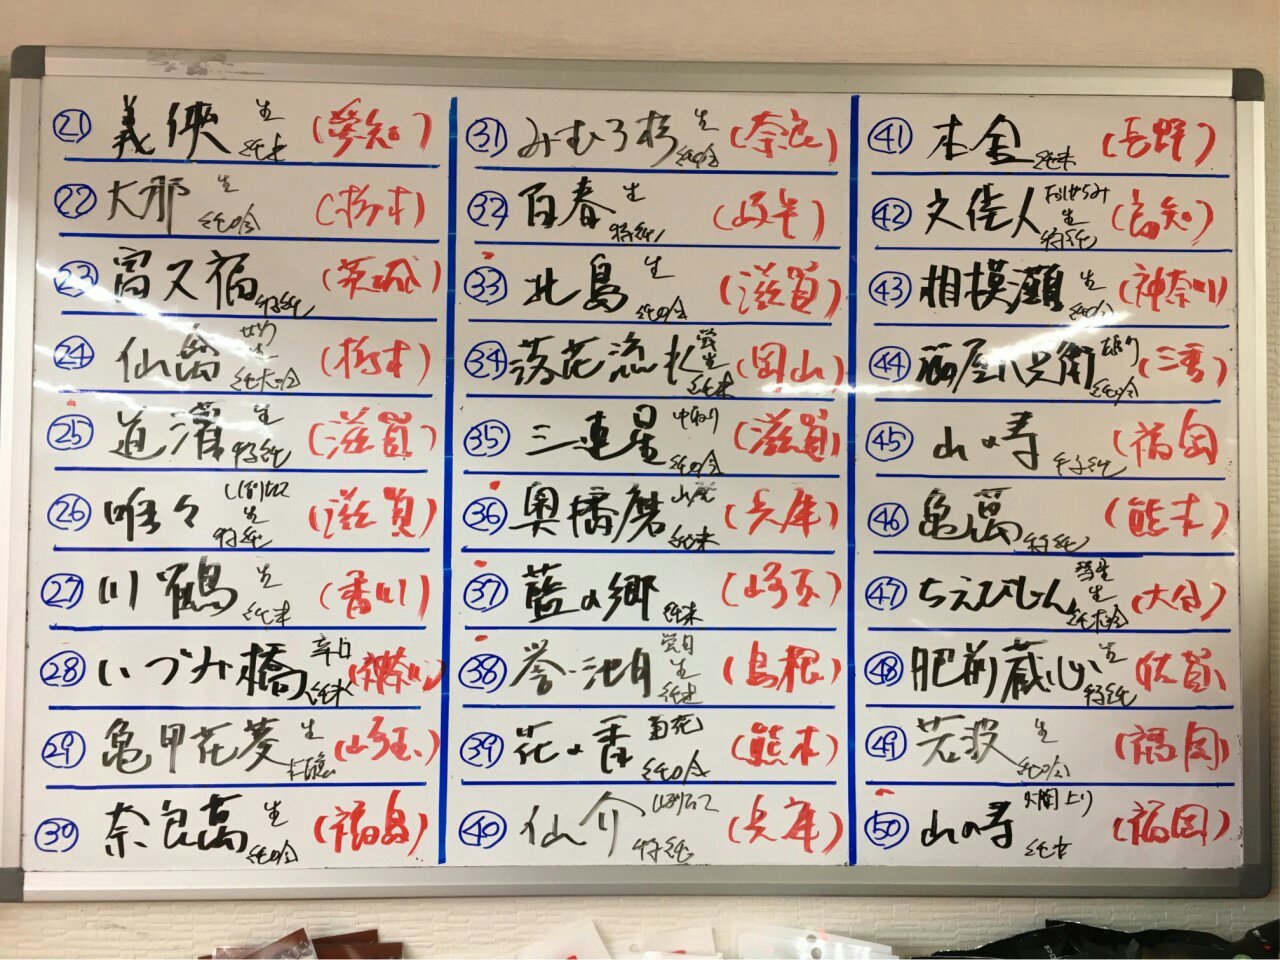 ㉑ 義侠 生 純米 (愛知)
㉒ 大那 生 純吟 (栃木)
㉓ 富久福 特純 (茨城)
㉔ 仙禽 (栃木)
㉕ 道灌 生 特純 (滋賀)
㉖ 唯々 しぼりたて 生 特純 (滋賀)
㉗ 川鶴 生 純米 (香川)
㉘ いづみ橋 辛口 純米 (神奈川)
㉙ 亀甲花菱 生 (埼玉)
㉚ 奈良萬 生 純吟 (福島)
㉛ みむろ杉 生 純吟 (奈良)
㉜ 百春 生 特純 (岐阜)
㉝ 北島 生 純吟 (滋賀)
㉞ 落花流水 生 純米 (岡山)
㉟ 三連星 中取り 純吟 (滋賀)
㊱ 奥播磨 山廃 純米 (兵庫)
㊲ 藍の郷 純米 (埼玉)
㊳ 誉池月 生 純米 (島根)
㊴ 花の香 菊花 純吟 (熊本)
㊵ 仙介 しぼりたて 特純 (兵庫)
㊶ 本金 純米 (長野)
㊷ 文佳人 生 特純 (高知)
㊸ 相模灘 生 純吟 (神奈川)
㊹ 酒屋八兵衛 純吟 (三重)
㊺ 山の寿 特純 (福岡)
㊻ 亀萬 特純 (熊本)
㊼ ちえびじん 生 純米吟 (大分)
㊽ 肥前蔵心 生 特純 (佐賀)
㊾ 若波 生 純吟 (福岡)
㊿ 山の寿 純米 (福岡)